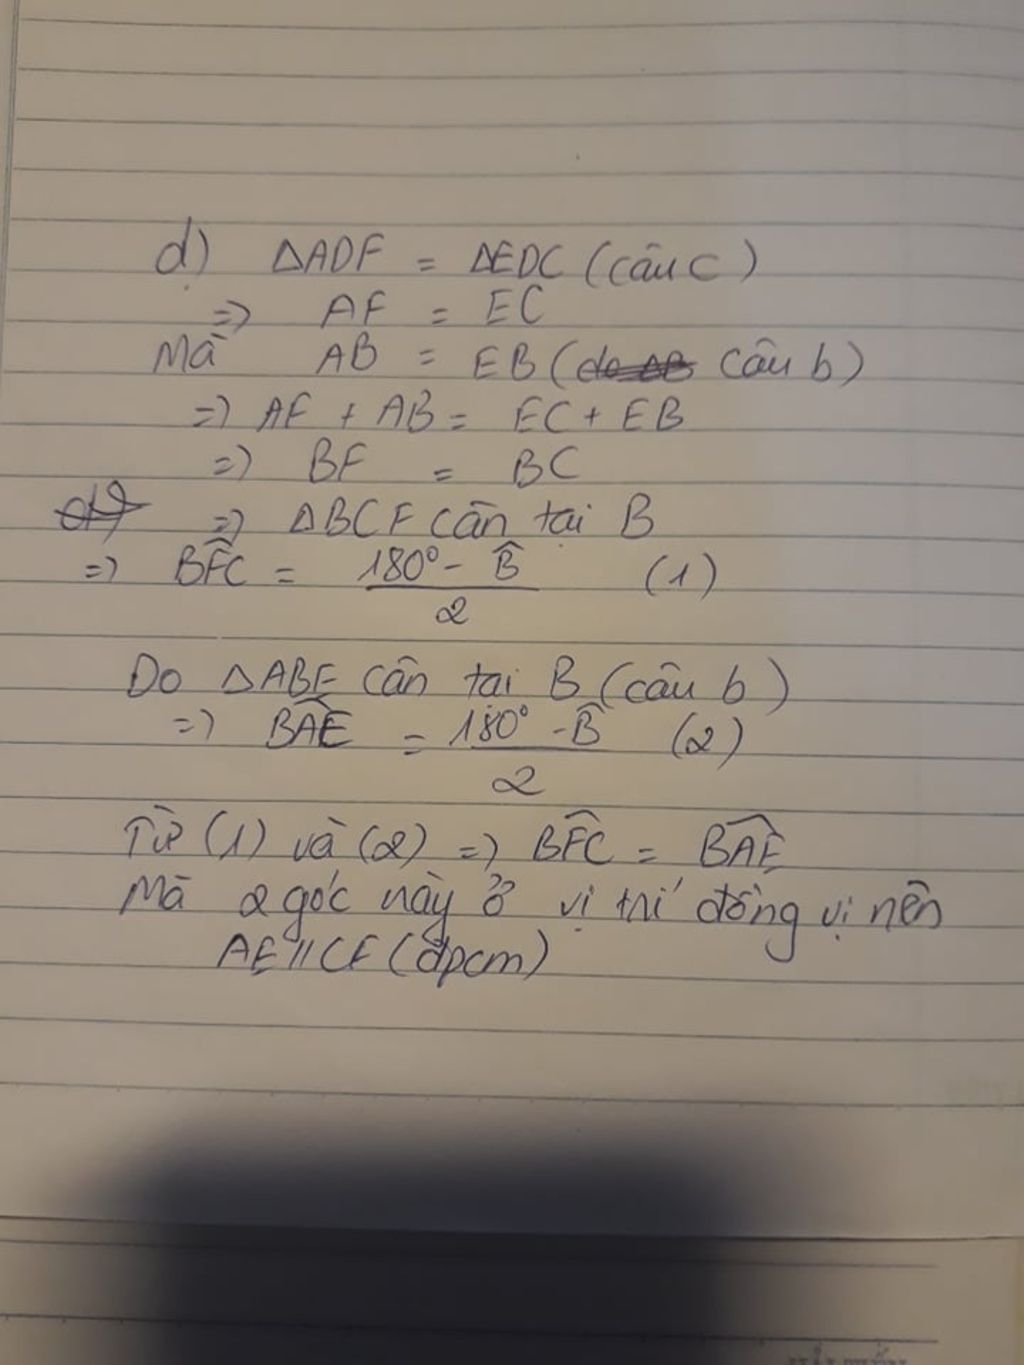 d) ΔADF = ΔEDC (câu c)
=> AF = EC
Mà AB = EB (câu b)
=> AF + AB = EC + EB
=> BF = BC
=> ΔBCF cân tại B
=> BFC^ = (180° - B^)/2 (1)
Do ΔABE cân tại B (câu b)
=> BAE^ = (180° - B^)/2 (2)
Từ (1) và (2) => BFC^ = BAE^
Mà 2 góc này ở vị trí đồng vị nên
AE // CF (đpcm)